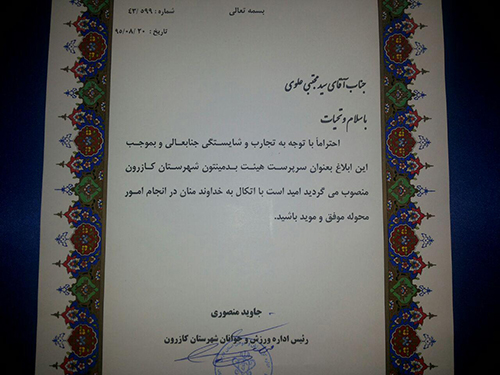 بسمه تعالی
شماره : ۵۹۹/ ۴۳
تاریخ : ۲۰ /۹۵/۰۸
جناب آقای سید مجتبی علوی
با سلام و تحیات
احتراماً با توجه به تجارب و شایستگی جنابعالی و بموجب
این ابلاغ بعنوان سرپرست هیئت بدمینتون شهرستان کازرون
منصوب می گردید امید است با اتکال به خداوند منان در انجام امور
محوله موفق و موید باشید.
جاوید منصوری
رئیس اداره ورزش و جوانان شهرستان کازرون